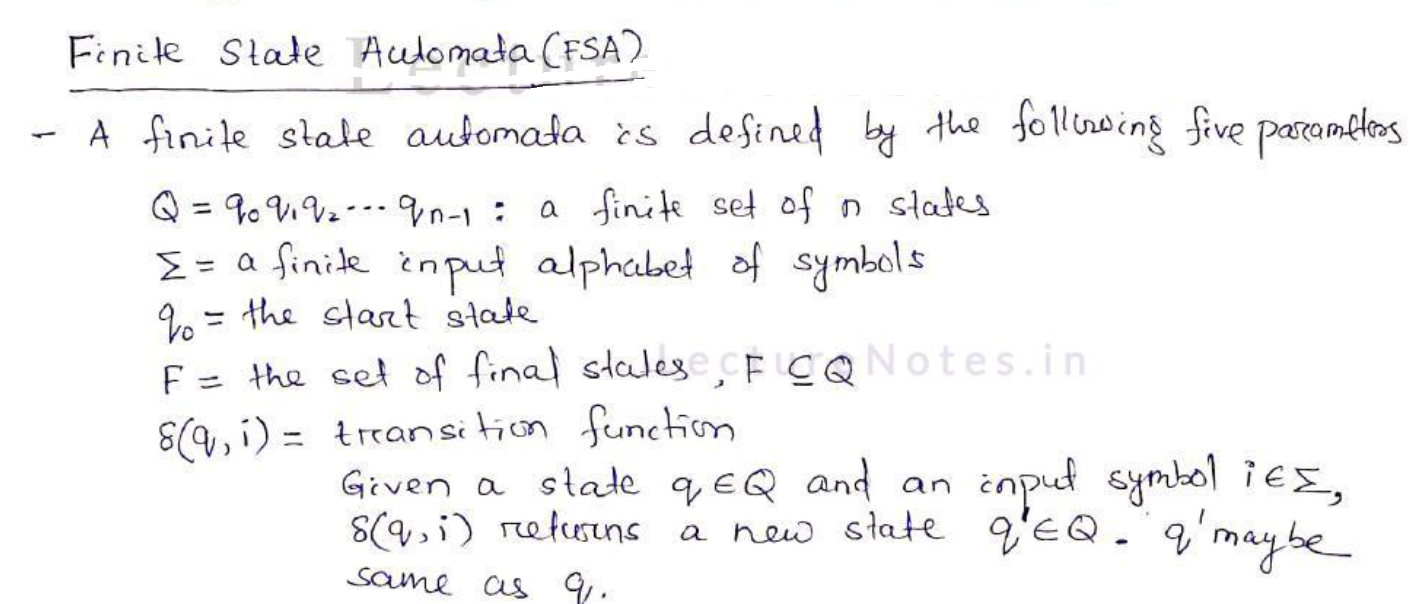 Finite State Automata (FSA)
- A finite state automata is defined by the following five parameters
Q = q₀q₁q₂...qₙ₋₁ : a finite set of n states
Σ = a finite input alphabet of symbols
q₀ = the start state
F = the set of final states, F ⊆ Q
LectureNotes.in
δ(q, i) = transition function
Given a state q ∈ Q and an input symbol i ∈ Σ,
δ(q, i) returns a new state q' ∈ Q. q' maybe
same as q.